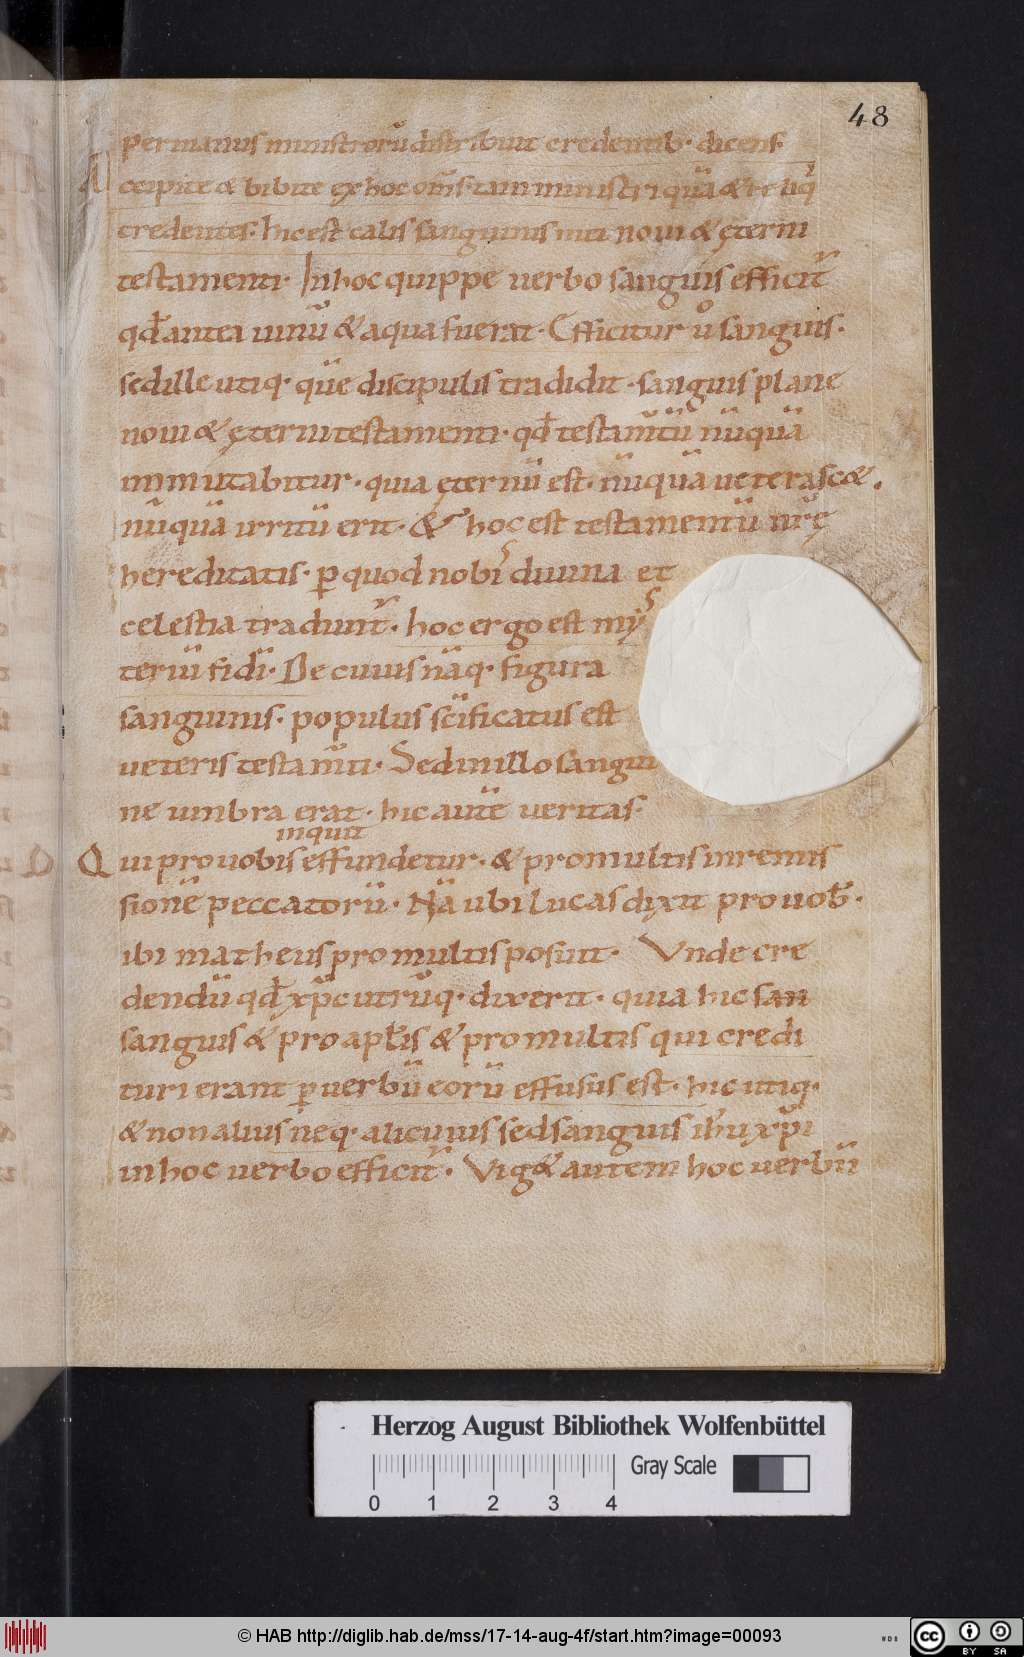 48
per manus ministrorū distribuit credentib· dicens·
Accipite & bibite ex hoc om̄s· tam ministri quā & reliq̇
credentes· hic est calix sanguinis mei noui & ęterni
testamenti· In hoc quippe uerbo sanguis efficit᷑
qd̄ antea uinū & aqua fuerat· Efficitur u̇ sanguis·
sed ille utiq· quē discipulis tradidit· sanguis plane
noui & ęterni testamenti· qd̄ testam̄tū nūquā
inmutabitur· quia ęternū est· nūquā ueterasc&·
nūquā irritū erit· & hoc est testamentū nr̄ę
hereditatis· ꝑ quod nobis diuina et
celestia tradunt᷑· hoc ergo est mys
teriū fidi· De cuius nāq· figura
sanguinis· populus sc̄ificatus est
ueteris testam̄ti· Sed in illo sangui
ne umbra erat· hic autē ueritas·
inquit
Qui pro uobis effundetur· & pro multis in remis
sionē peccatorū· Nā ubi lucas dixit pro uob̄·
ibi matheus pro multis posuit· Vnde cre
dendū qd̄ xp̄c utrūq· dixerit· quia hic san
sanguis & pro apl̄is & pro multis qui credi
turi erant ꝑ uerbū eorū effusus est· hic utiq·
& non alius neq· alicuius sed sanguis ih̄u xp̄i
in hoc uerbo efficit᷑· Vig& autem hoc uerbū
Herzog August Bibliothek Wolfenbüttel
Gray Scale
0 1 2 3 4
© HAB http://diglib.hab.de/mss/17-14-aug-4f/start.htm?image=00093
WDB
cc
BY SA